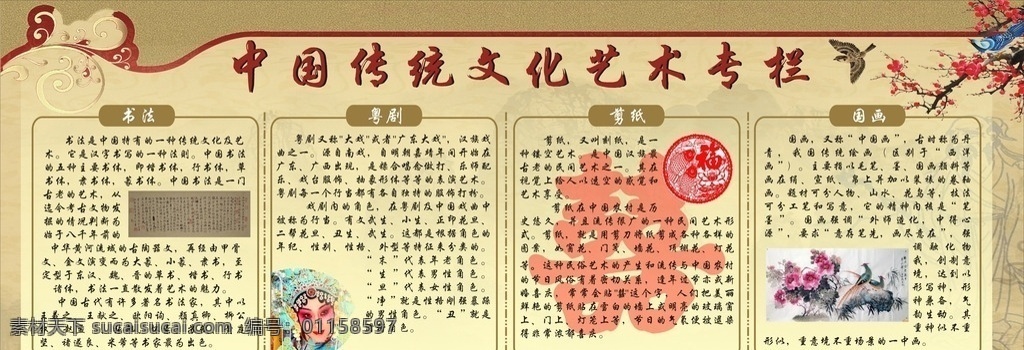 中国传统文化艺术专栏
书法
书法是中国特有的一种传统文化及艺
术。它是汉字书写的一种法则。中国书法
的五种主要书体：楷书体，行书体，草
书体，隶书体，篆书体。中国书法是一门
古老的艺术，从
中华黄河流域的古陶器文，再经由甲骨
文、金文演变而为大篆、小篆、隶书，至
定型于东汉、魏、晋的草书、楷书、行书
诸体，书法一直散发着艺术的魅力。
中国古代有许多著名书法家，其中以
粤剧
粤剧又称“大戏”或者“广东大戏”，汉族戏
曲之一。源自南戏，自明朝嘉靖年间开始在
广东、广西出现，是糅合唱做念打、乐师配
乐、戏台服饰、抽象形体等等的表演艺术。
粤剧每一个行当都有各自独特的服饰打扮。
戏剧内的角色，在粤剧及中国戏曲中
被称为行当。有文武生、小生、正印花旦、
二帮花旦、丑生、武生。这都是根据角色的
年纪，性别，性格，外型等特征来分类的。
“生”代表年老角色。
“旦”代表女性角色。
剪纸
剪纸，又叫刻纸，是一
种镂空艺术，是中国汉族最
古老的民间艺术之一。其在
视觉上给人以透空的感觉和
艺术享受
剪纸在中国农村是历
史悠久，并且流传很广的一种民间艺术形
式。剪纸，就是用剪刀将纸剪成各种各样的
图案，如窗花、门笺、墙花、顶棚花、灯花
等。这种民俗艺术的产生和流传与中国农村
的节日风俗有着密切关系，逢年过节亦或新
婚喜庆，常常会贴“囍”这个字，人们把美丽
鲜艳的剪纸贴在雪白的墙上或明亮的玻璃窗
上、门上、灯笼上等，节日的气氛便被渲染
得非常浓郁喜庆。
福
国画
国画，又称“中国画”，古时称为丹
青，我国传统绘画（区别于“西洋
画”）。主要指以毛笔、墨、国画颜料等
画在绢、宣纸、帛上并加以装裱的卷轴
画。题材可分人物、山水、花鸟等，技法
可分工笔和写意，它的精神内核是“笔
墨”。国画强调“外师造化，中得心
源”，要求“意存笔先，画尽意在”，强
调融化物
我，创制意
境，达到以
形写神，形
神兼备，气
韵生动。
似，重意境不重场景的一中画。
素材天下 sucaisucai.com 编号：01158597